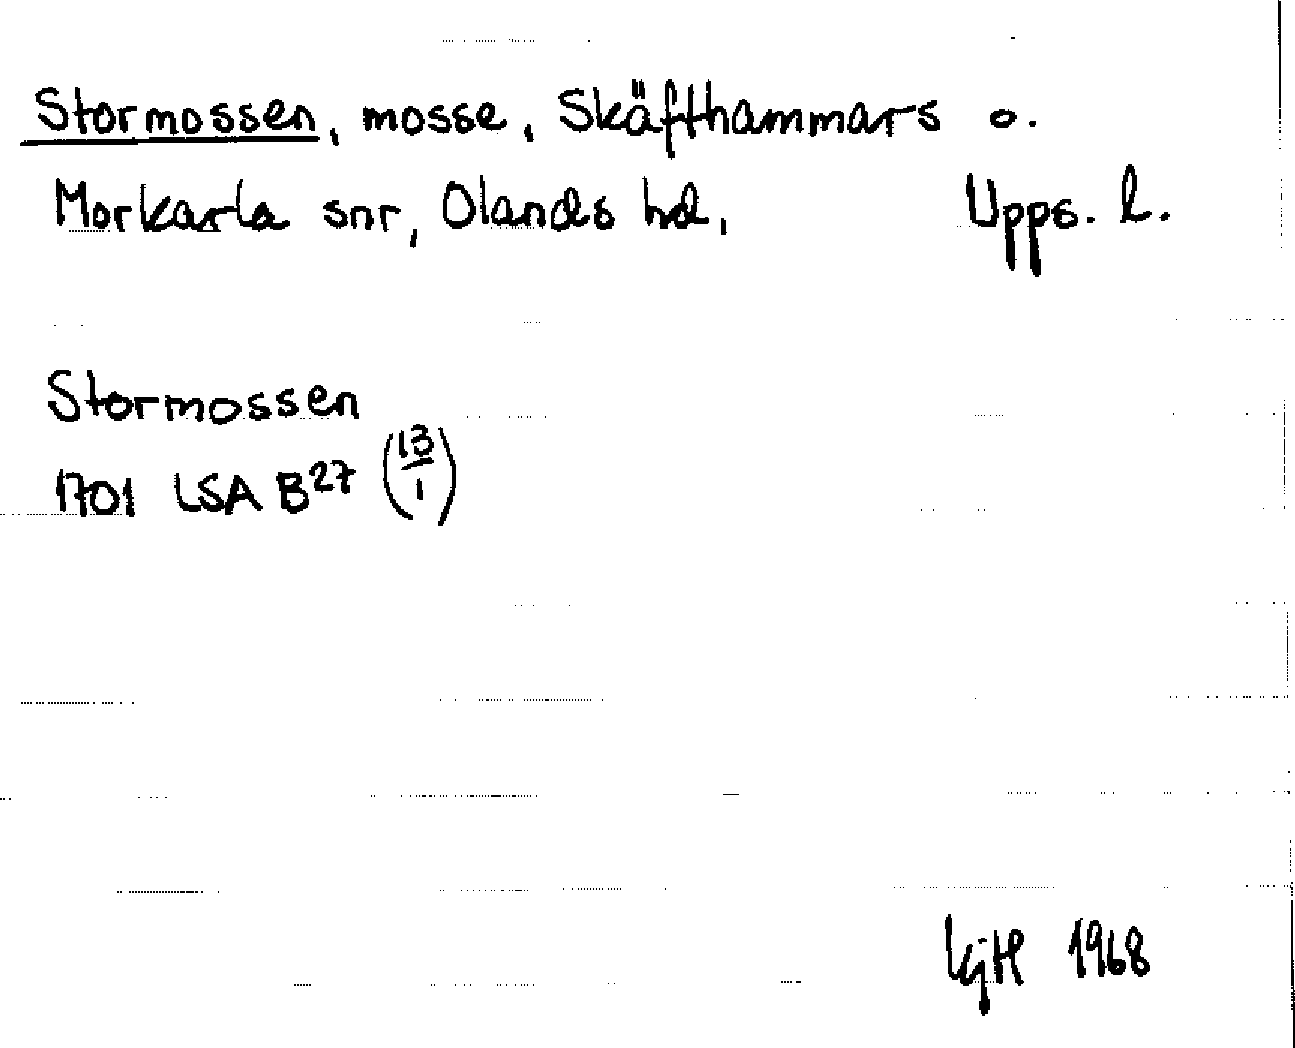 Stormossen, mosse, Skäfthammars o.
Morkarla snr, Olands hd, Upps. l.
Stormossen
1701 LSA B27 (13/1)
1968